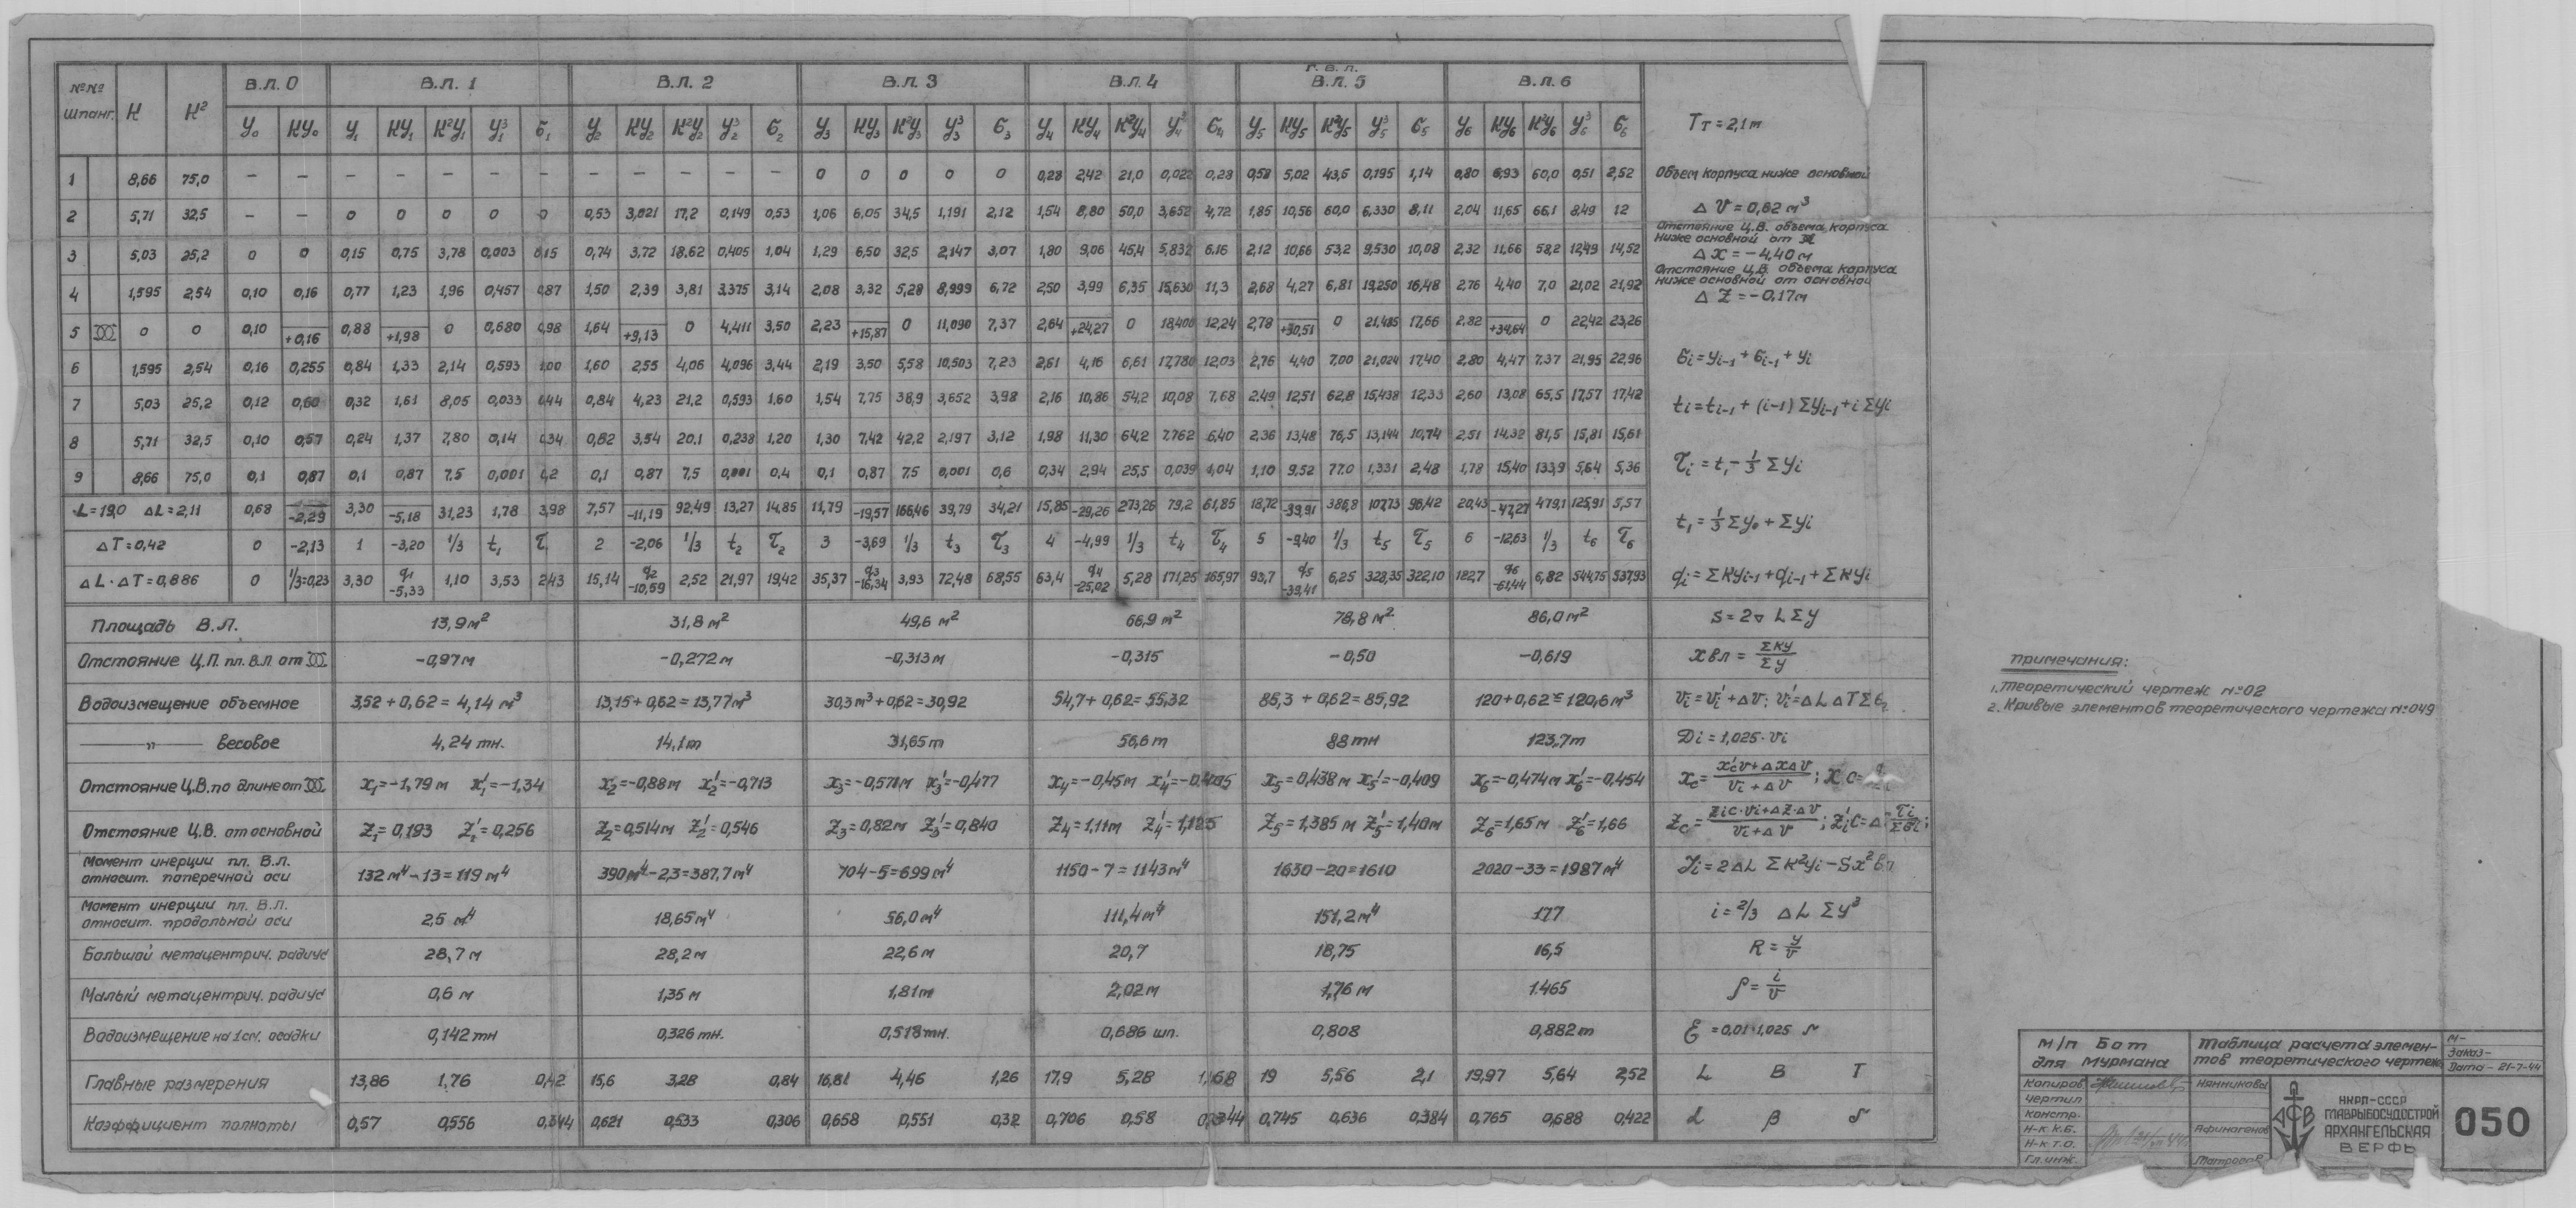 №№ Шпанг. К К² В.Л. 0 В.Л. 1 В.Л. 2 В.Л. 3 В.Л. 4 Г.В.Л. В.Л. 5 В.Л. 6
У₀ КУ₀ У₁ КУ₁ К²У₁ У³₁ б₁ У₂ КУ₂ К²У₂ У³₂ б₂ У₃ КУ₃ К²У₃ У³₃ б₃ У₄ КУ₄ К²У₄ У³₄ б₄ У₅ КУ₅ К²У₅ У³₅ б₅ У₆ КУ₆ К²У₆ У³₆ б₆ Tт = 2,1 т
1 8,66 75,0 – – – – – – – – – – – – 0 0 0 0 0 0,28 2,42 21,0 0,022 0,28 0,58 5,02 43,5 0,195 1,14 0,80 6,93 60,0 0,51 2,52 Объем корпуса ниже основной
2 5,71 32,5 – – 0 0 0 0 0 0,53 3,021 17,2 0,149 0,53 1,06 6,05 34,5 1,191 2,12 1,54 8,80 50,0 3,652 4,72 1,85 10,56 60,0 6,330 8,11 2,04 11,65 66,1 8,49 12 Δ V = 0,62 м³
Отстояние Ц.В. объема корпуса
ниже основной от
3 5,03 25,2 0 0 0,15 0,75 3,78 0,003 0,15 0,74 3,72 18,62 0,405 1,04 1,29 6,50 32,5 2,147 3,07 1,80 9,06 45,4 5,832 6,16 2,12 10,66 53,2 9,530 10,08 2,32 11,66 58,2 12,49 14,52 Δ x = – 4,40 м
Отстояние Ц.В. объема корпуса
ниже основной от основной
4 1,595 2,54 0,10 0,16 0,77 1,23 1,96 0,457 0,87 1,50 2,39 3,81 3,375 3,14 2,08 3,32 5,28 8,999 6,72 2,50 3,99 6,35 15,630 11,3 2,68 4,27 6,81 19,250 16,48 2,76 4,40 7,0 21,02 21,92 Δ Z = – 0,17 м
5 0 0 0,10 +0,16 0,88 +1,98 0 0,680 0,98 1,64 +9,13 0 4,411 3,50 2,23 +15,87 0 11,090 7,37 2,64 +24,27 0 18,400 12,24 2,78 +30,51 0 21,485 17,66 2,82 +34,64 0 22,42 23,26
6 1,595 2,54 0,16 0,255 0,84 1,33 2,14 0,593 1,00 1,60 2,55 4,06 4,096 3,44 2,19 3,50 5,58 10,503 7,23 2,61 4,16 6,61 17,780 12,03 2,76 4,40 7,00 21,024 17,40 2,80 4,47 7,37 21,95 22,96 бi = yi-1 + бi-1 + yi
7 5,03 25,2 0,12 0,60 0,32 1,61 8,05 0,033 0,44 0,84 4,23 21,2 0,593 1,60 1,54 7,75 38,9 3,652 3,98 2,16 10,86 54,2 10,08 7,68 2,49 12,51 62,8 15,438 12,33 2,60 13,08 65,5 17,57 17,42 ti = ti-1 + (i-1) Σyi-1 + i Σyi
8 5,71 32,5 0,10 0,57 0,24 1,37 7,80 0,14 0,34 0,62 3,54 20,1 0,238 1,20 1,30 7,42 42,2 2,197 3,12 1,98 11,30 64,2 7,762 6,40 2,36 13,48 76,5 13,144 10,74 2,51 14,32 81,5 15,81 15,61
9 8,66 75,0 0,1 0,87 0,1 0,87 7,5 0,001 0,2 0,1 0,87 7,5 0,001 0,4 0,1 0,87 7,5 0,001 0,6 0,34 2,94 25,5 0,039 1,04 1,10 9,52 77,0 1,331 2,48 1,78 15,40 133,9 5,64 5,36 τi = t₁ – 1/3 Σ yi
L = 19,0 ΔL = 2,11 0,68 -2,29 3,30 -5,18 31,23 1,78 3,98 7,57 -11,19 92,49 13,27 14,85 11,79 -19,57 166,46 39,79 34,21 15,85 -29,26 273,26 79,2 61,85 18,72 -39,91 386,8 107,73 96,42 20,43 -47,27 479,1 125,91 5,57 t₁ = 1/3 Σy₀ + Σyi
ΔT = 0,42 0 -2,13 1 -3,20 1/3 t₁ τ₁ 2 -2,06 1/3 t₂ τ₂ 3 -3,69 1/3 t₃ τ₃ 4 -4,99 1/3 t₄ τ₄ 5 -9,40 1/3 t₅ τ₅ 6 -12,63 1/3 t₆ τ₆
ΔL · ΔT = 0,886 0 1/3=0,23 3,30 q₁ -5,33 1,10 3,53 2,43 15,14 q₂ -10,59 2,52 21,97 19,42 35,37 q₃ -16,34 3,93 72,48 68,55 63,4 q₄ -25,02 5,28 171,25 165,97 93,7 q₅ -39,41 6,25 328,35 322,10 122,7 q₆ -61,44 6,82 544,75 537,93 qi = ΣКyi-1 + qi-1 + ΣКyi
Площадь В.Л. 13,9 м² 31,8 м² 49,6 м² 66,9 м² 78,8 м² 86,0 м² S = 2▽ L Σ y
Отстояние Ц.П. пл. В.Л. от -0,97 м -0,272 м -0,313 м -0,315 -0,50 -0,619 xвл = ΣКУ/Σу
Водоизмещение объемное 3,52 + 0,62 = 4,14 м³ 13,15 + 0,62 = 13,77 м³ 30,3 м³ + 0,62 = 30,92 54,7 + 0,62 = 55,32 85,3 + 0,62 = 85,92 120 + 0,62 = 120,6 м³ Vi = Vi' + ΔV; Vi' = ΔLΔTΣб
—"— весовое 4,24 тн. 14,1 т 31,65 т 56,6 т 88 тн 123,7 т Di = 1,025 · Vi
Отстояние Ц.В. по длине от x₁ = -1,79 м x₁' = -1,34 x₂ = -0,88 м x₂' = -0,713 x₃ = -0,571 м x₃' = -0,477 x₄ = -0,45 м x₄' = -0,405 x₅ = 0,438 м x₅' = -0,409 x₆ = -0,474 м x₆' = -0,454 xc = x'cv + ΔxΔv / Vi + ΔV ;
Отстояние Ц.В. от основной Z₁ = 0,193 Z₁' = 0,256 Z₂ = 0,514 м Z₂' = 0,546 Z₃ = 0,82 м Z₃' = 0,840 Z₄ = 1,11 м Z₄' = 1,125 Z₅ = 1,385 м Z₅' = 1,40 м Z₆ = 1,65 м Z₆' = 1,66 Zc = Zic·Vi + ΔZ·ΔV / Vi + ΔV ;
Момент инерции пл. В.Л.
относит. поперечной оси 132 м⁴ – 13 = 119 м⁴ 390 м⁴ – 2,3 = 387,7 м⁴ 704 – 5 = 699 м⁴ 1150 – 7 = 1143 м⁴ 1630 – 20 = 1610 2020 – 33 = 1987 м⁴ Ji = 2ΔL Σ К²yi – Sx²вл
Момент инерции пл. В.Л.
относит. продольной оси 2,5 м⁴ 18,65 м⁴ 56,0 м⁴ 111,4 м⁴ 151,2 м⁴ 177 i = 2/3 ΔL Σ y³
Большой метацентрич. радиус 28,7 м 28,2 м 22,6 м 20,7 18,75 16,5 R = y/v
Малый метацентрич. радиус 0,6 м 1,35 м 1,81 м 2,02 м 1,76 м 1.465 ρ = i/v
Водоизмещение на 1 см. осадки 0,142 тн 0,326 тн. 0,518 тн. 0,686 шп. 0,808 0,882 т ε = 0,01·1,025 s
Главные размерения 13,86 1,76 0,42 15,6 3,28 0,84 16,81 4,46 1,26 17,9 5,28 1,68 19 5,56 2,1 19,97 5,64 2,52 L B T
Коэффициент полноты 0,57 0,556 0,344 0,621 0,533 0,306 0,658 0,551 0,32 0,706 0,58 0,344 0,745 0,636 0,384 0,765 0,688 0,422 α β δ
Примечания:
1. Теоретический чертеж №02
2. Кривые элементов теоретического чертежа №049
м/п Бот
для Мурмана
Таблица расчета элемен-
тов теоретического чертеж
М-
Заказ-
Дата – 21-7-44
Копиров. Нянникова
Чертил
Констр.
Н-к К.Б. Афиногенов
Н-к Т.О.
Гл. инж.
АСВ
НКРП-СССР
ГЛАВРЫБОСУДОСТРОЙ
АРХАНГЕЛЬСКАЯ
ВЕРФЬ
050